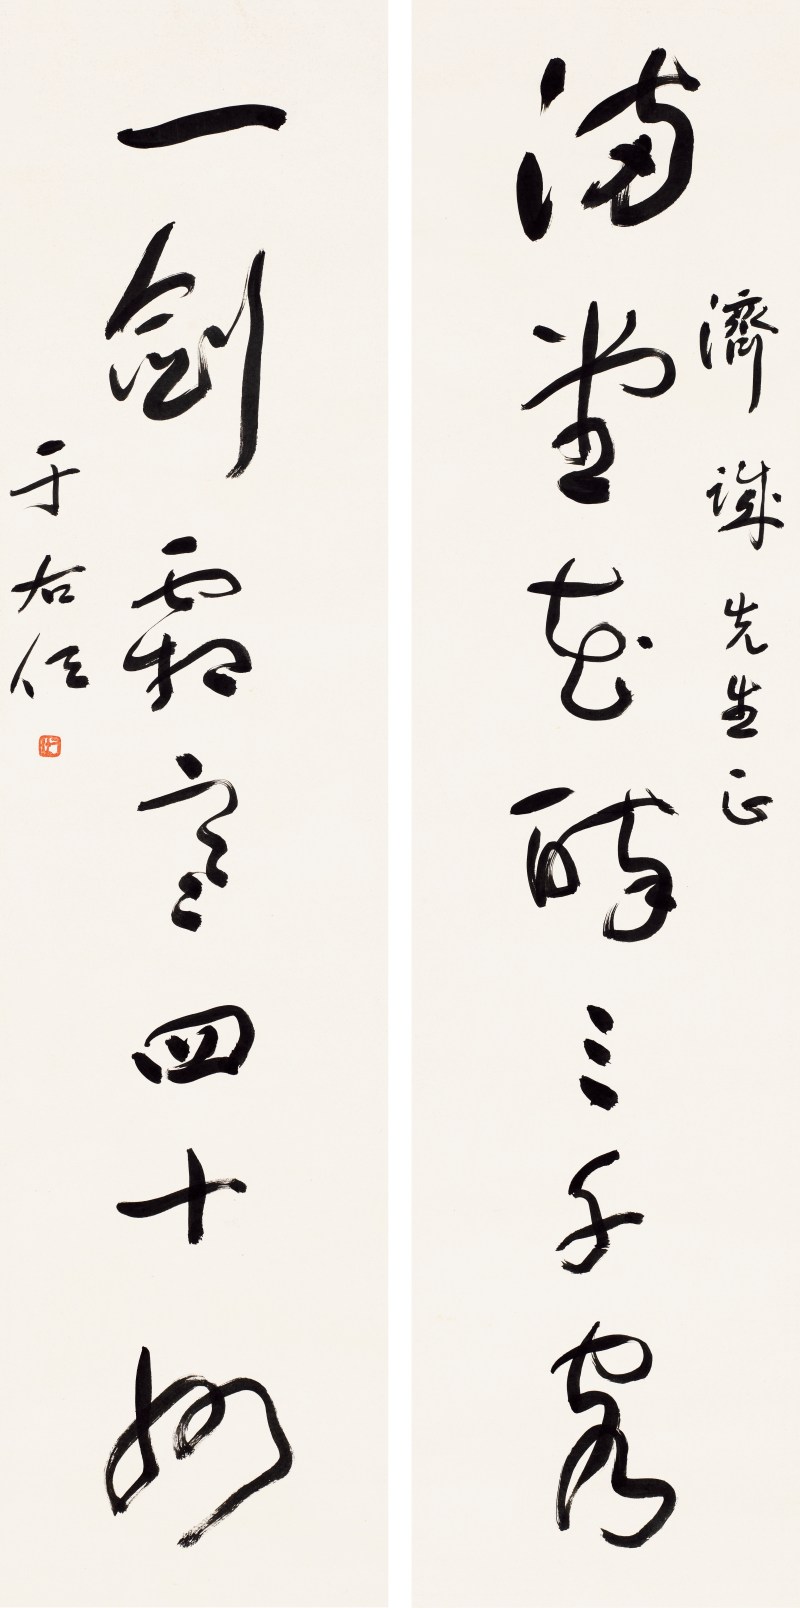 濟誠先生正
滿堂花醉三千客
一劍霜寒四十州
于右任